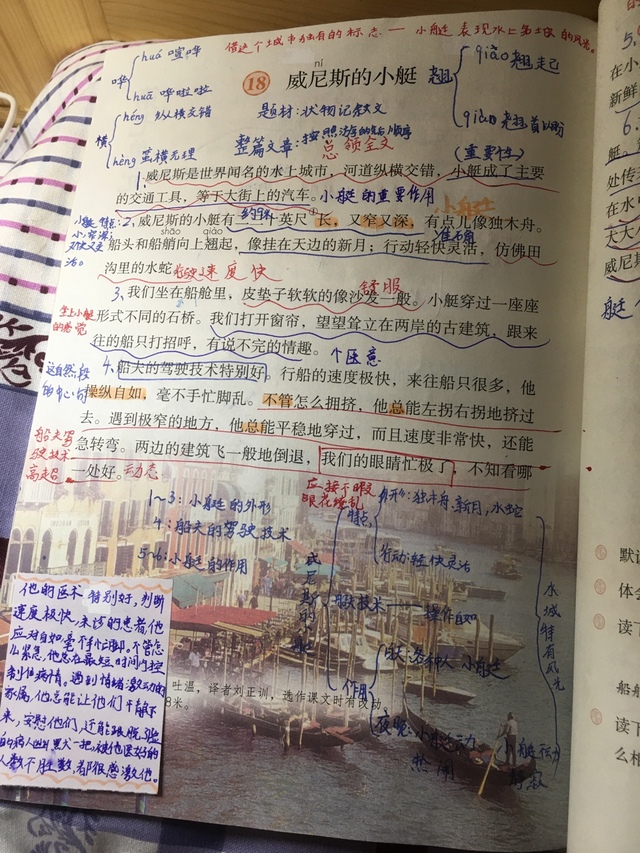 借这个城市独有的标志——小艇表现水上
huá 喧哗
哗
huā 哗啦啦
héng 纵横交错
横
hèng 蛮横无理
ní
18 威尼斯的小艇
翘
qiáo 翘起
qiào 翘首以盼
题材:状物记叙文
整篇文章:按照
总领全文
(重要性)
1、威尼斯是世界闻名的水上城市,河道纵横交错,小艇成了主要
的交通工具,等于大街上的汽车。
小艇的重要作用
小艇特点:
2、威尼斯的小艇有二三十英尺①长,又窄又深,有点儿像独木舟。
约9米
shāo qiào
船头和船艄向上翘起,像挂在天边的新月;行动轻快灵活,仿佛田
沟里的水蛇。
驾驶速度快
舒服
3、我们坐在船舱里,皮垫子软软的像沙发一般。小艇穿过一座座
坐上小艇
的感觉
形式不同的石桥。我们打开窗帘,望望耸立在两岸的古建筑,跟来
往的船只打招呼,有说不完的情趣。
个医患
这自然段
的中心句
4、船夫的驾驶技术特别好。行船的速度极快,来往船只很多,他
操纵自如,毫不手忙脚乱。不管怎么拥挤,他总能左拐右拐地挤过
去。遇到极窄的地方,他总能平稳地穿过,而且速度非常快,还能
急转弯。两边的建筑飞一般地倒退,我们的眼睛忙极了,不知看哪
一处好。
动态
船夫驾
驶技术
高超
应接不暇
眼花缭乱
1~3:小艇的外形
4:船夫的驾驶技术
5~6:小艇的作用
威尼斯的小艇
特点
外形:独木舟、新月、水蛇
行动:轻快灵活
驾驶技术——操作自如
作用
各种人 小艇
夜晚
热闹
水城特有风光
他的医术特别好,判断
速度极快,来诊的患者,他
应对自如,毫不手忙脚乱。不管怎
么紧急,他总在最短时间内控
制住病情。遇到情绪激动的
亲属,他总能让他们平静下
来,安慰他们,还能跟
人数不胜数,都很感激他。
吐温,译者刘正训,选作课文时有改动。
8米。